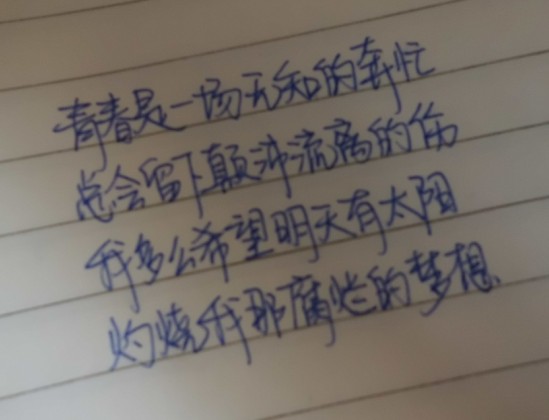 青春是一场无知的奔忙
总会留下颠沛流离的伤
我多么希望明天有太阳
灼烧我那腐烂的梦想